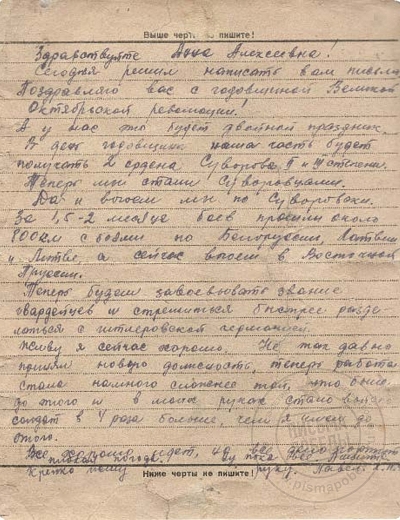 Выше черты не пишите!
Здравствуйте Анна Алексеевна!
Сегодня решил написать вам письмо.
Поздравляю вас с годовщиной Великой
Октябрьской революции!
А у нас это будет двойной праздник.
В день годовщины наша часть будет
получать 2 ордена Суворова, II и III степени.
Теперь мы стали Суворовцами.
Да и воюем мы по Суворовски.
За 1,5-2 месяца боев прошли около
800 км с боями по Белоруссии, Латвии
и Литве, а сейчас воюем в Восточной
Пруссии.
Теперь будем завоевывать звание
гвардейцев и стремиться быстрее разде
латься с гитлеровской германией.
Живу я сейчас хорошо. Не так давно
принял новую должность, теперь работа
стала намного сложнее той, что была
до этого и в моих руках стало
солдат в 4 раза больше, чем я имел до
этого.
Все хорошо идет, но
плохая погода. Ну пока все. Пишите
Крепко жму руку. Павел
Ниже черты не пишите!